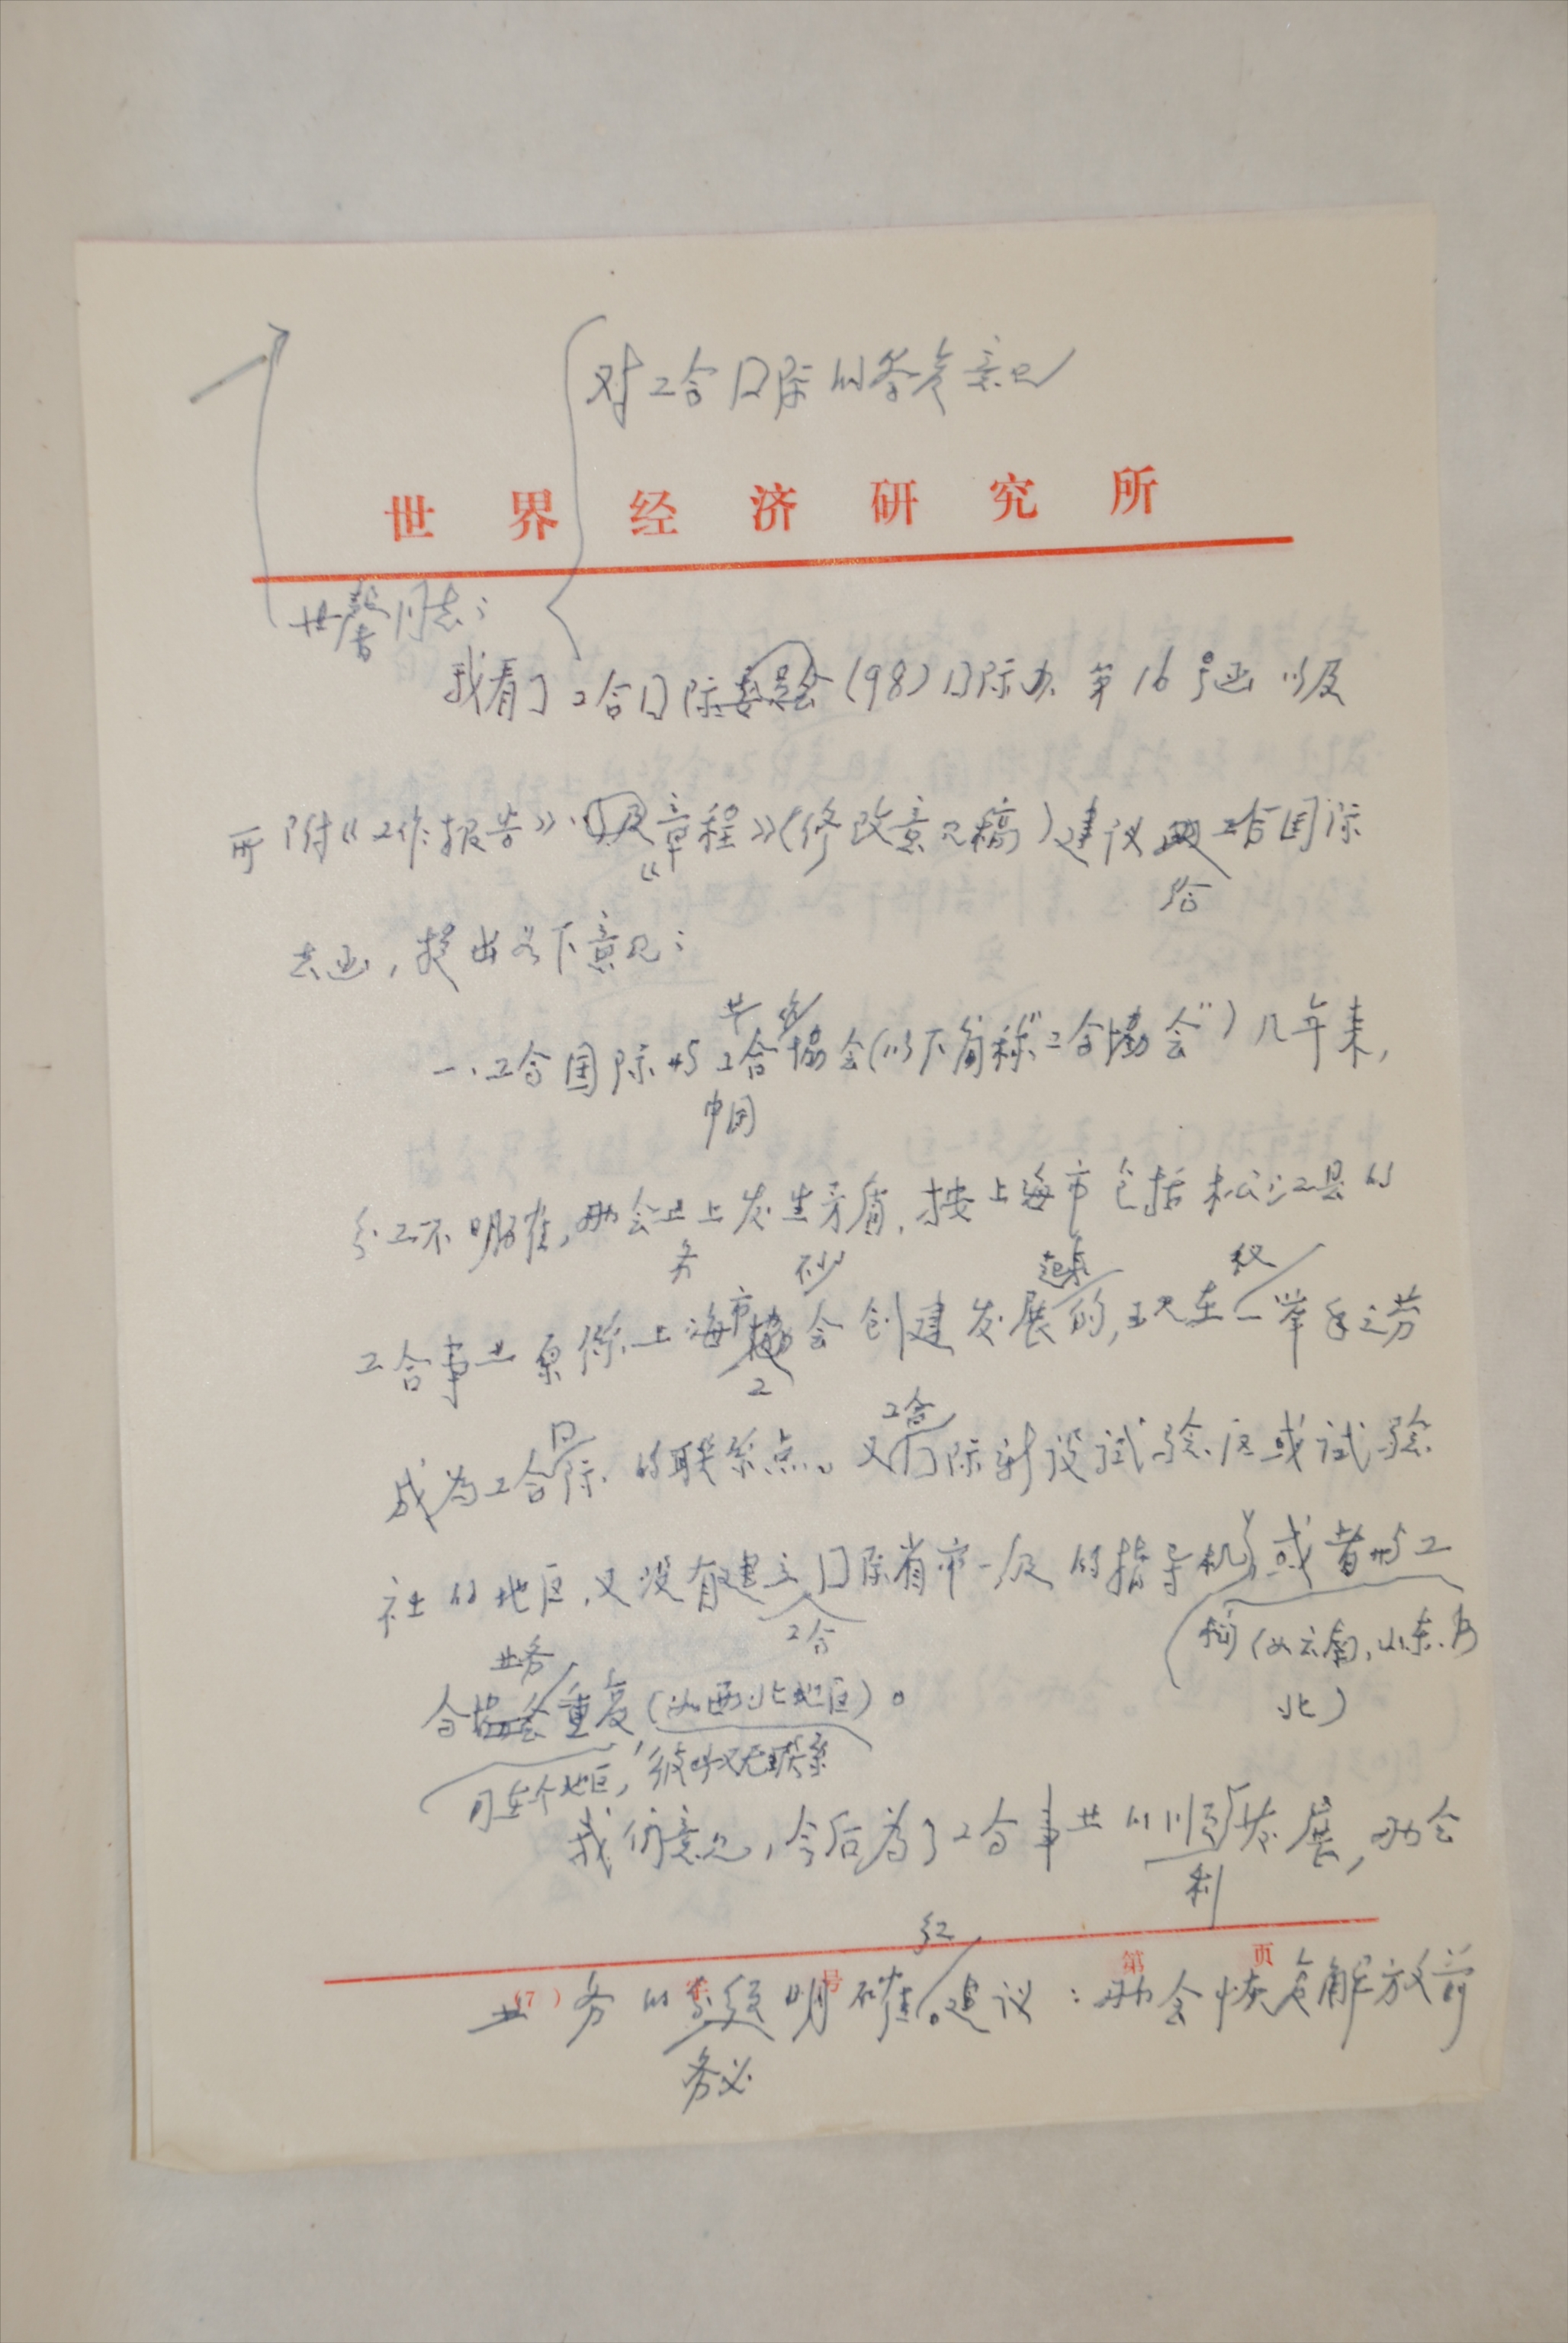 对工合国际的答复意见
世界经济研究所
世馨同志：
我看了工合国际委员会(98)国际办第16号函以及
所附《工作报告》以及《章程》(修改意见稿)建议工合国际
给
去函，提出以下意见：
一、工合国际与工合協会(以下简称"工合協会")几年来，
中国
分工不明確，两会业上发生矛盾，按上海市包括松江县的
务
起来
工合事业原係上海市協会创建发展的，现在一举手之劳
工
工合
成为工合国际的联系点。又国际新设试验区或试验
社的地区，又没有建立国际省市一级的指导机或者与工
工合
构(如云南，山东，河
北)
业务
合協会重复(如西北地区)。
同在个地区，彼此又无联系
我们意见，今后为了工合事业的顺发展，两会
利
业务的明確。建议：两会恢复解放前
务必
(7) 第 页